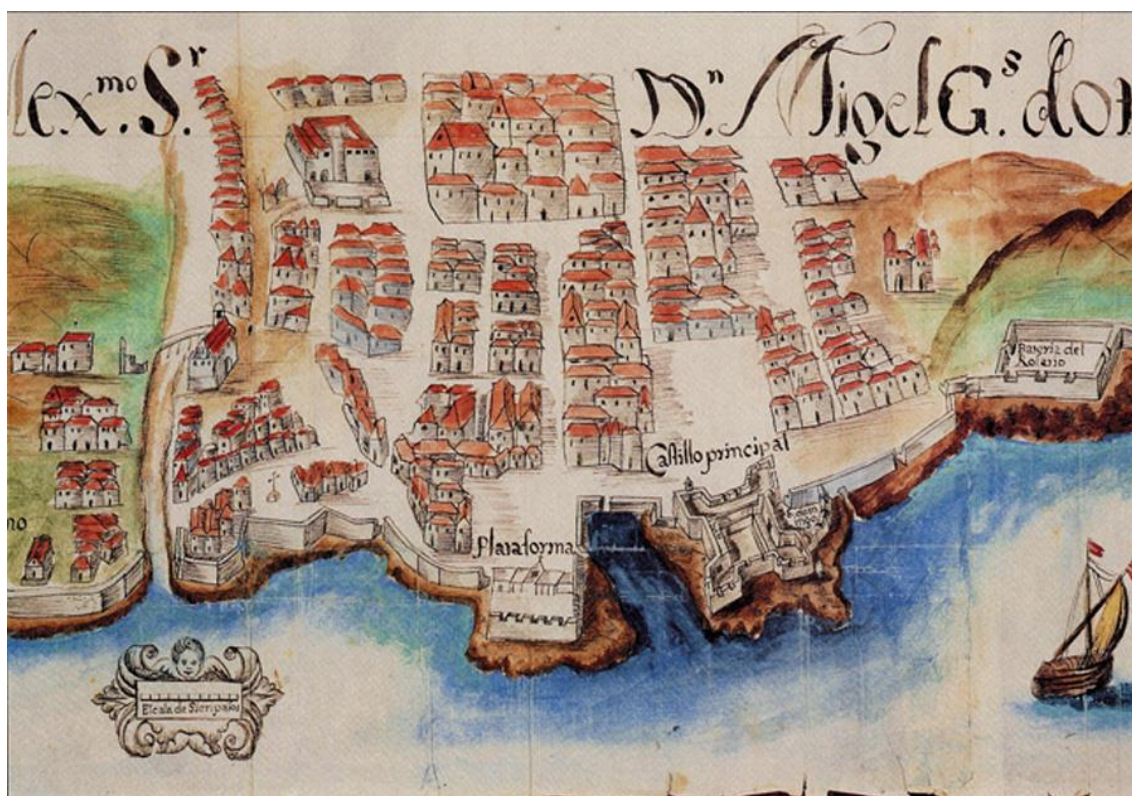 lex.mo S.r
D.n Migel G.s dot
Bateria del
Rosario
Castillo principal
Plataforma
no
Escala de Sien pasos